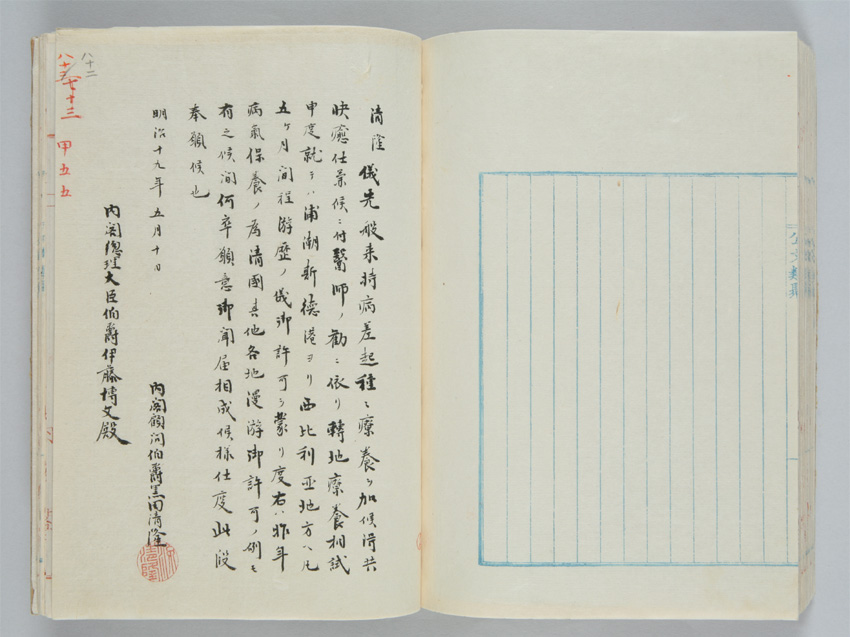 清隆儀先般来持病差起種々療養ヲ加候得共
快癒仕兼候ニ付醫師ノ勸ニ依リ轉地療養相試
申度就テハ浦潮新德港ヨリ西比利亜地方ヘ凡
五ヶ月間程游歴ノ儀御許可ヲ蒙リ度右ハ昨年
病氣保養ノ為清國其他各地漫游御許可ノ例モ
有之候間何卒願意御聞届相成候様仕度此段
奉願候也
明治十九年五月十日
内閣顧問伯爵黒田清隆
内閣總理大臣伯爵伊藤博文殿
八十二
七十三
甲五五